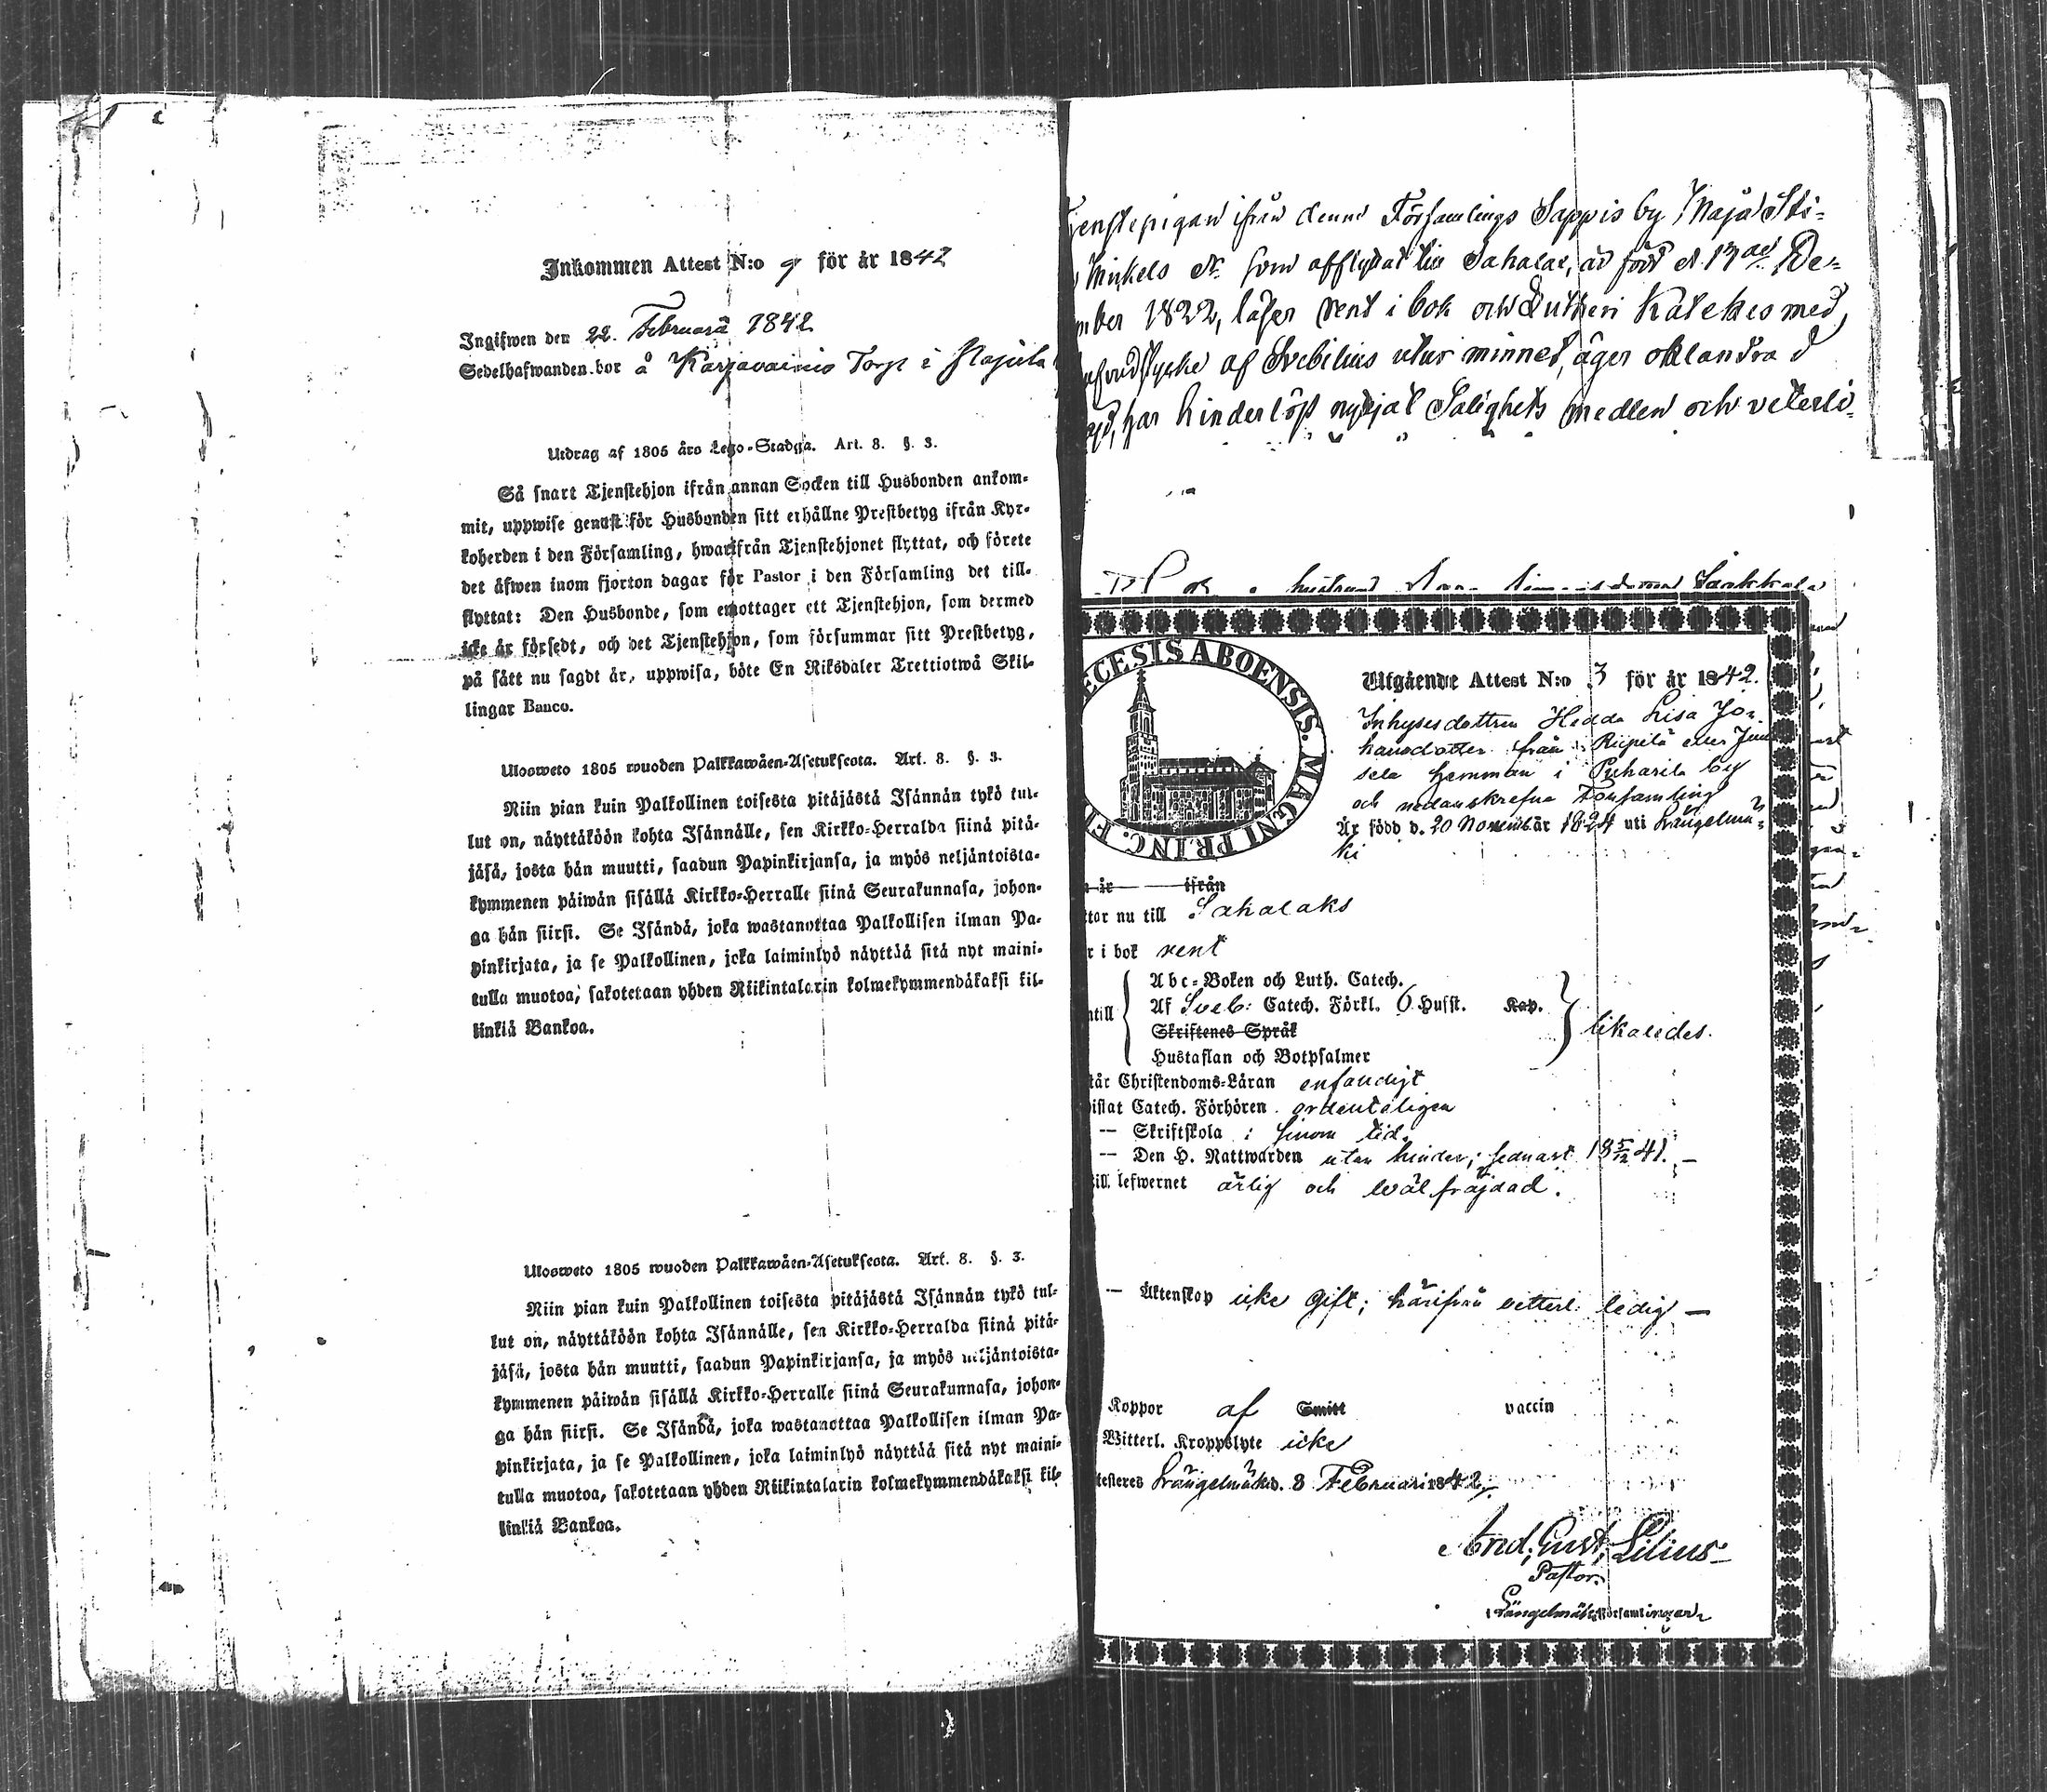 Inkommen Attest N:o 9 för år 1842
Ingifwen den 22. Februari 1842
Sedelhafwanden bor å Karjavainio Torp i
Utdrag af 1805 års Lego-Stadga. Art. 8. §. 3.
Så snart Tjenstehjon ifrån annan Socken till Husbonden ankom-
mit, uppwise genast för Husbonden sitt erhållne Prestbetyg ifrån Kyr-
koherden i den Församling, hwarifrån Tjenstehjonet flyttat, och förete
det äfwen inom fjorton dagar för Pastor i den Församling det till-
flyttat: Den Husbonde, som emottager ett Tjenstehjon, som dermed
icke är försedt, och det Tjenstehjon, som försummar sitt Prestbetyg,
på sätt nu sagdt är, uppwisa, böte En Riksdaler Trettiotwå Skil-
lingar Banco.
Ulosweto 1805 wuoden Palkkawäen-Asetuksesta. Art. 8. §. 3.
Niin pian kuin Palkollinen toisesta pitäjästä Isännän tykö tul-
lut on, näyttäköön kohta Isännälle, sen Kirkko-Herralda siinä pitä-
jäsä, josta hän muutti, saadun Papinkirjansa, ja myös neljäntoista-
kymmenen päiwän sisällä Kirkko-Herralle siinä Seurakunnasa, johon-
ga hän siirsi. Se Isändä, joka wastanottaa Palkollisen ilman Pa-
pinkirjata, ja se Palkollinen, joka laiminlyö näyttää sitä nyt maini-
tulla muotoa, sakotetaan yhden Riikintalarin kolmekymmendäkaksi kil-
linkiä Bankoa.
Ulosweto 1805 wuoden Palkkawäen-Asetuksesta. Art. 8. §. 3.
Niin pian kuin Palkollinen toisesta pitäjästä Isännän tykö tul-
lut on, näyttäköön kohta Isännälle, sen Kirkko-Herralda siinä pitä-
jäsä, josta hän muutti, saadun Papinkirjansa, ja myös neljäntoista-
kymmenen päiwän sisällä Kirkko-Herralle siinä Seurakunnasa, johon-
ga hän siirsi. Se Isändä, joka wastanottaa Palkollisen ilman Pa-
pinkirjata, ja se Palkollinen, joka laiminlyö näyttää sitä nyt maini-
tulla muotoa, sakotetaan yhden Riikintalarin kolmekymmendäkaksi kil-
linkiä Bankoa.
jenstepigan ifrån denne Församlings Sappis by Maja Sti-
Mickels dr. som afflyttat till Sahalax, är född d. 13de De-
mber 1822, läser rent i bok och Lutheri Kateches med
stycke af Svebilius utur minnet, äger oklandrad
har hinderlöst nyttjat Salighets medlen och veterli-
hustrun
ECESIS ABOENSIS. MAGNI PRINC. FI
Utgående Attest N:o 3 för år 1842.
Inhysesdottren Hedda Lisa Jo-
hansdotter från Riipilä eller
sela hemman i Puharila by
och nedanskrefne Församling
Är född d. 20 November år 1824 uti Längelmä-
ki
år ifrån
ttar nu till Sahalaks
r i bok rent
ntill
Abc-Boken och Luth. Catech.
Af Sveb: Catech. Förkl. 6 Husst. Kap.
Skriftenes Språk
Hustaflan och Botpsalmer
likaledes.
tår Christendoms-Läran enfaldigt
istat Catech. Förhören ordenteligen
— Skriftskola i sinom tid.
— Den H. Nattwarden utan hinder; sednast 18 5/12 41. —
till lefwernet ärlig och wälfräjdad.
— Äktenskap icke gift; härifrån vetterl. ledig —
Koppor af Smitt vaccin
Witterl. Kroppslyte icke
testeres Längelmäki d. 8 Februari 1842.
And. Gust. Lilius
Pastor
Längelmäki Församlingar